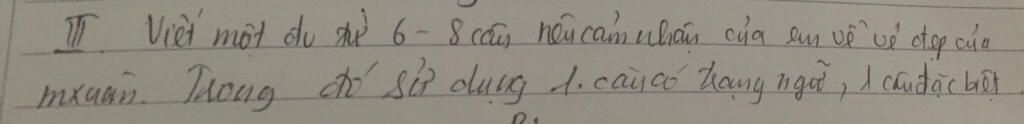 III Viết một đv từ 6 - 8 câu nêu cảm nhận của em về vẻ đẹp của
mxuân. Trong đó sử dụng 1. câu có trạng ngữ, 1 câu đặc biệt.